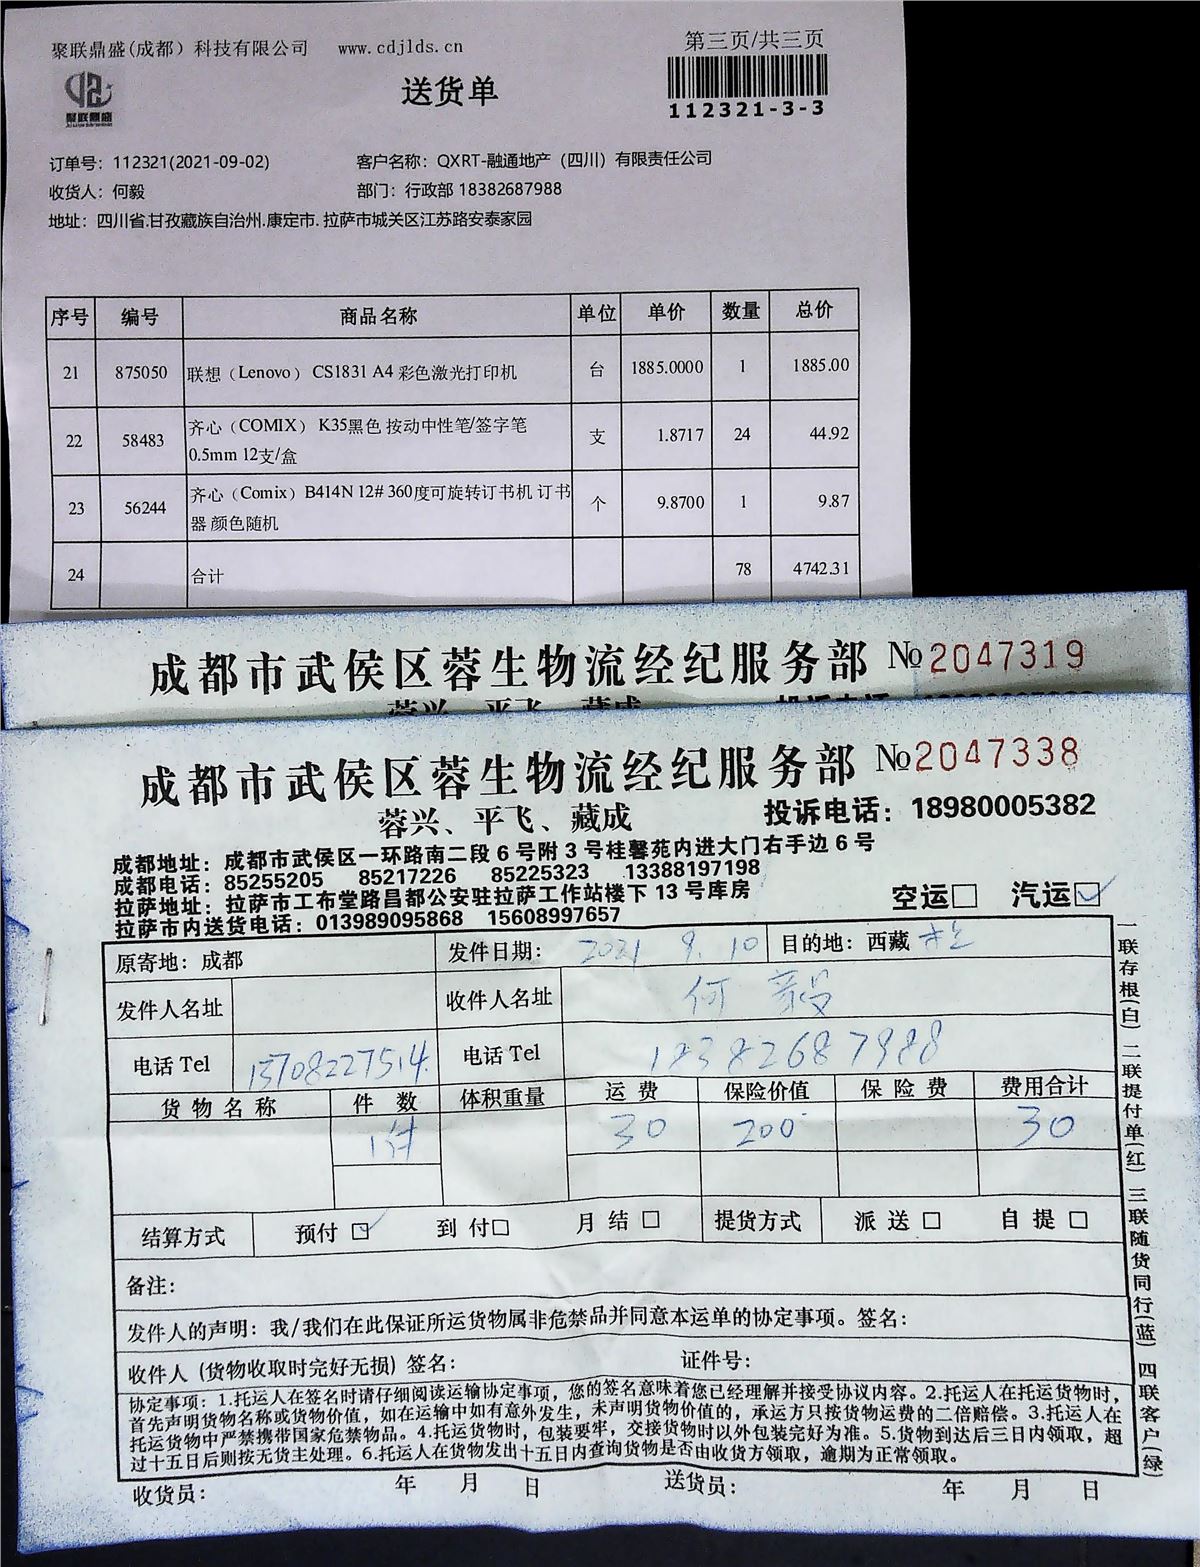 聚联鼎盛(成都）科技有限公司 www.cdjlds.cn
第三页/共三页
聚联鼎盛
送货单
112321-3-3
订单号：112321(2021-09-02) 客户名称：QXRT-融通地产（四川）有限责任公司
收货人：何毅 部门：行政部 18382687988
地址：四川省.甘孜藏族自治州.康定市.拉萨市城关区江苏路安泰家园
序号 编号 商品名称 单位 单价 数量 总价
21 875050 联想（Lenovo） CS1831 A4 彩色激光打印机 台 1885.0000 1 1885.00
22 58483 齐心（COMIX） K35黑色 按动中性笔/签字笔 0.5mm 12支/盒 支 1.8717 24 44.92
23 56244 齐心（Comix）B414N 12# 360度可旋转订书机 订书器 颜色随机 个 9.8700 1 9.87
24 合计 78 4742.31
成都市武侯区蓉生物流经纪服务部 №2047319
蓉兴、平飞、藏成 投诉电话
成都市武侯区蓉生物流经纪服务部 №2047338
蓉兴、平飞、藏成 投诉电话：18980005382
成都地址：成都市武侯区一环路南二段6号附3号桂馨苑内进大门右手边6号
成都电话：85255205 85217226 85225323 13388197198
拉萨地址：拉萨市工布堂路昌都公安驻拉萨工作站楼下13号库房
拉萨市内送货电话：013989095868 15608997657
空运□ 汽运☑
原寄地：成都 发件日期：2021 9. 10 目的地：西藏
发件人名址 收件人名址 何毅
电话 Tel 13708227514 电话 Tel 18382687988
货物名称 件数 体积重量 运费 保险价值 保险费 费用合计
1件 30 200 30
结算方式 预付☑ 到付□ 月结□ 提货方式 派送□ 自提□
备注：
发件人的声明：我/我们在此保证所运货物属非危禁品并同意本运单的协定事项。签名：
收件人 (货物收取时完好无损) 签名： 证件号：
协定事项：1.托运人在签名时请仔细阅读运输协定事项，您的签名意味着您已经理解并接受协议内容。2.托运人在托运货物时，
首先声明货物名称或货物价值，如在运输中如有意外发生，未声明货物价值的，承运方只按货物运费的二倍赔偿。3.托运人在
托运货物中严禁携带国家危禁物品。4.托运货物时，包装要牢，交接货物时以外包装完好为准。5.货物到达后三日内领取，超
过十五日后则按无货主处理。6.托运人在货物发出十五日内查询货物是否由收货方领取，逾期为正常领取。
收货员： 年 月 日 送货员： 年 月 日
一联存根(白) 二联提付单(红) 三联随货同行(蓝) 四联客户(绿)